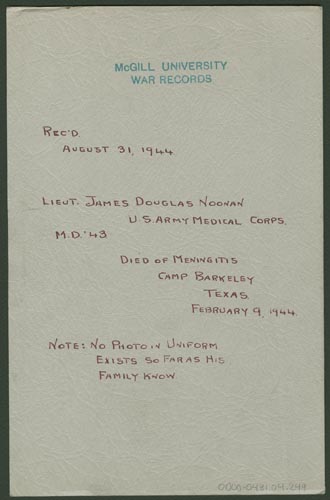 McGILL UNIVERSITY
WAR RECORDS
REC'D.
AUGUST 31, 1944
LIEUT. JAMES DOUGLAS NOONAN
U.S. ARMY MEDICAL CORPS.
M.D. '43
DIED OF MENINGITIS
CAMP BARKELEY
TEXAS.
FEBRUARY 9, 1944.
NOTE: NO PHOTO IN UNIFORM
EXISTS SO FAR AS HIS
FAMILY KNOW.
0000-0481.04.249